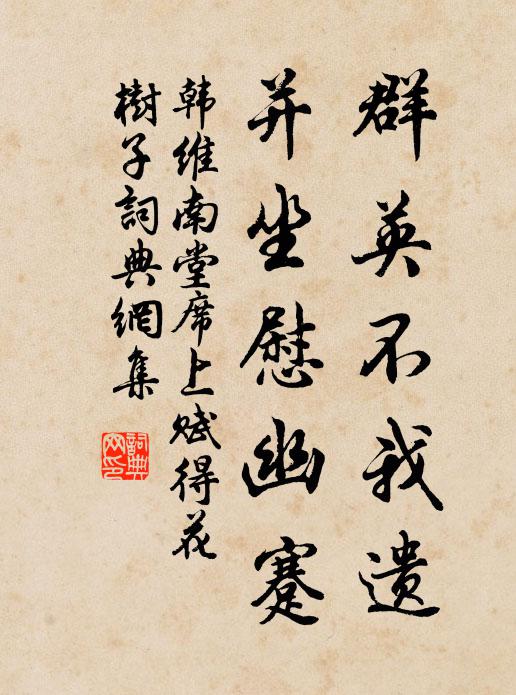 群英不我遗
并坐慰幽蹇
韩维南堂席上赋得花
树子詞典網集
詞典
网印